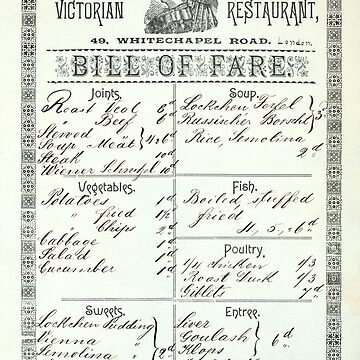 VICTORIAN RESTAURANT,
49, WHITECHAPEL ROAD. London.
BILL OF FARE.
Joints.
Roast beef 6d
" Beef 6
Stewed
Soup Meat } 4 & 6d
Steak 10d
Wiener Schnitzel 10d
Soup.
Lockchen Torfel
Russischer Borscht } 3d
Rice, Semolina
2d
Vegetables.
Potatoes 1d
" fried 1½
" Chips 2d
Cabbage 1d
Salad 1d
Cucumber 1d
Fish.
Boiled, stuffed
fried
4, 5, & 6d
Poultry.
1/4 chicken 1/3
Roast Duck 1/3
Giblets 7d
Sweets.
Lockchen Pudding
Vienna "
Semolina " } 2d
Entree.
Liver
Goulash } 6d
Klops